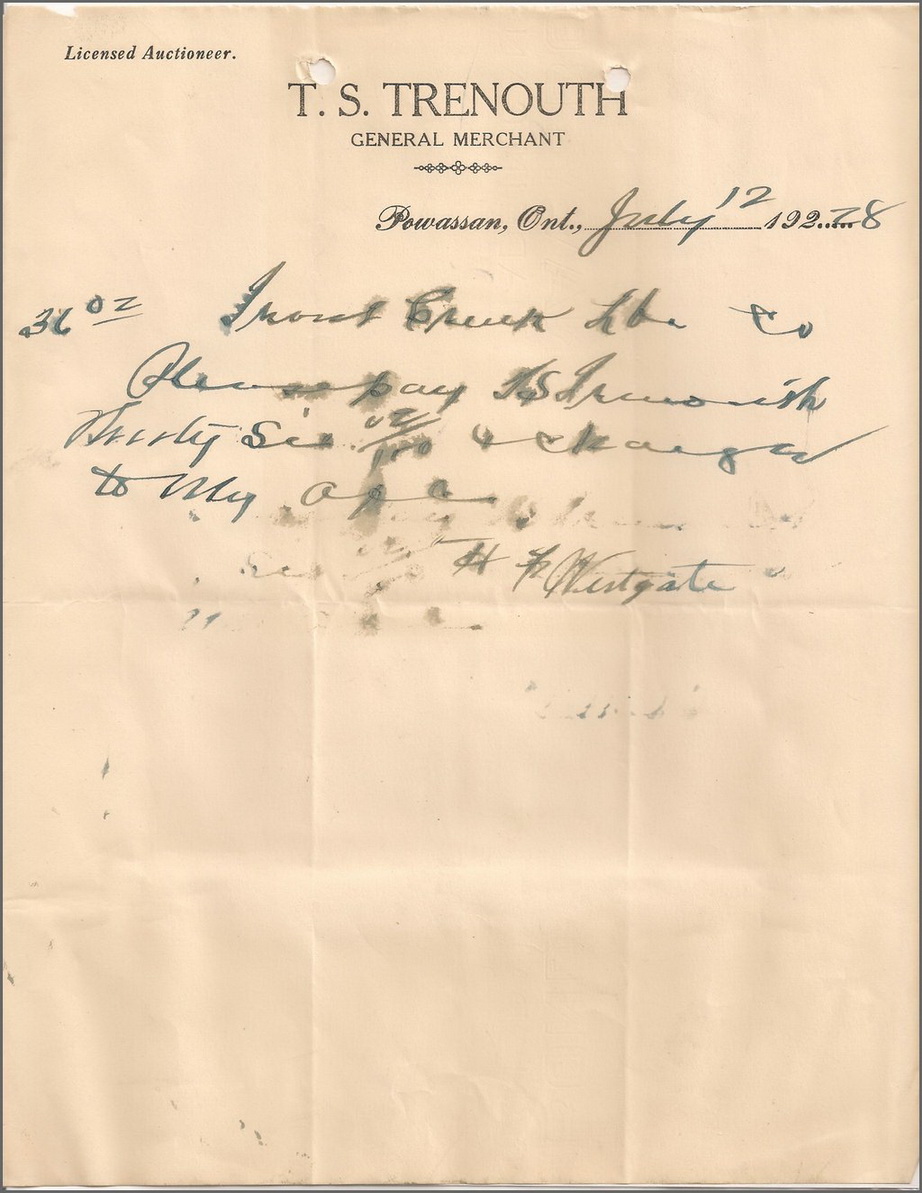 Licensed Auctioneer.
T. S. TRENOUTH
GENERAL MERCHANT
Powassan, Ont., July 12 192...28
36 02 Trout Creek Lbr Co
Please pay T S Trenouth
Thirty Six 02/100 & charge
to My a/c
H F Westgate